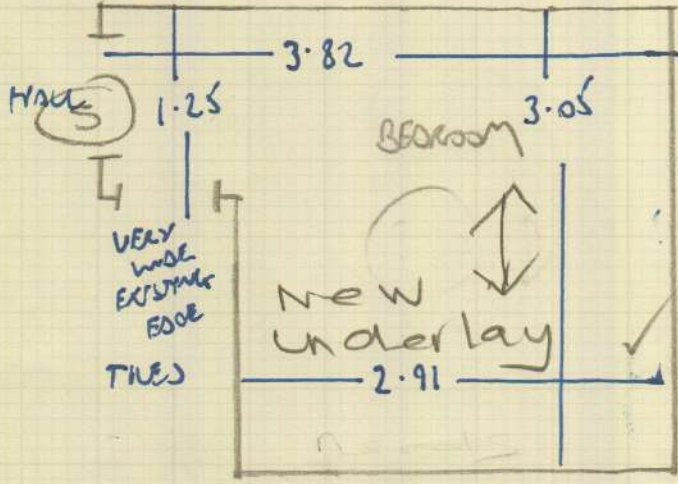 3.82
HALL
5
1.25
3.05
BEDROOM
VERY
WIDE
EXISTING
EDGE
New
underlay
TILES
2.91